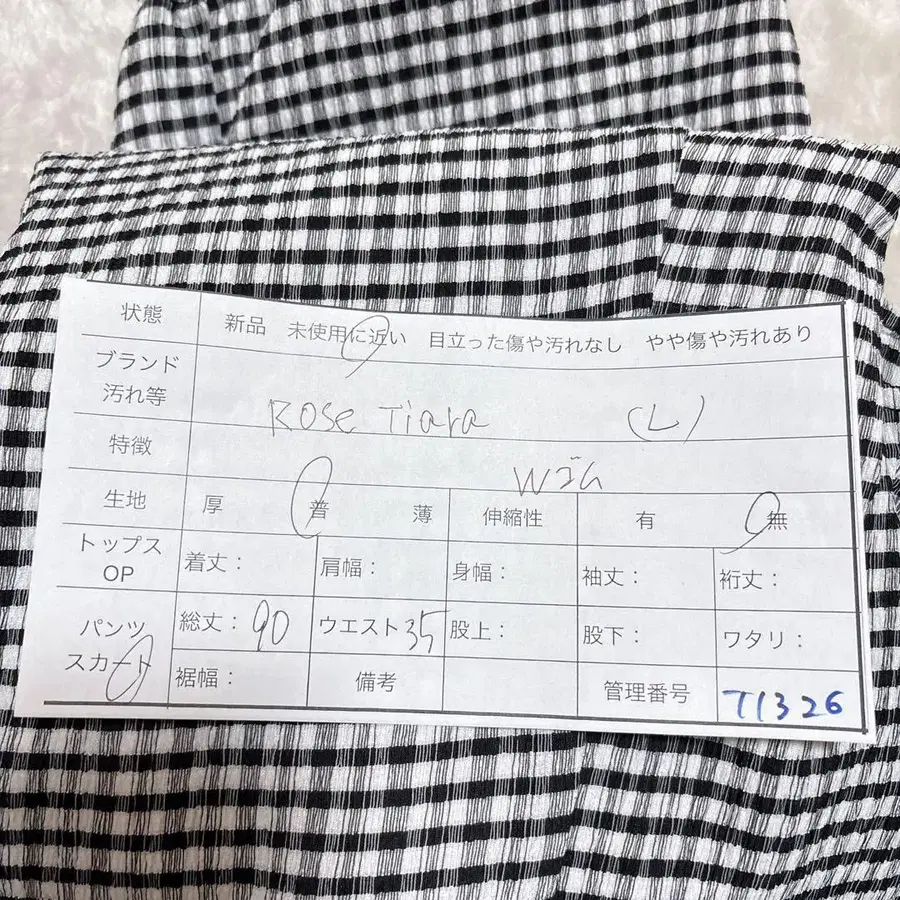 状態 新品 未使用に近い 目立った傷や汚れなし やや傷や汚れあり
ブランド
汚れ等 Rose Tiara (L)
特徴 Wゴム
生地 厚 普 薄 伸縮性 有 無
トップス
OP 着丈： 肩幅： 身幅： 袖丈： 裄丈：
パンツ
スカート 総丈：90 ウエスト35 股上： 股下： ワタリ：
裾幅： 備考 管理番号 T1326